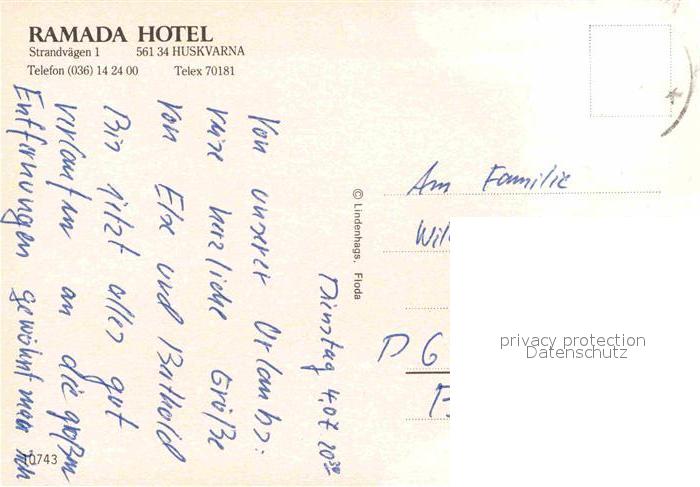 RAMADA HOTEL
Strandvägen 1 561 34 HUSKVARNA
Telefon (036) 14 24 00 Telex 70181
Dienstag 4.07 20³⁰
Von unserer Urlaubs:
reise herzliche Grüße
von Else und Berthold
Bis jetzt alles gut
verlaufen an die großen
Entfernungen gewöhnt man sich
© Lindenhags, Floda
An Familie
Wil
D 6
privacy protection
Datenschutz
10743